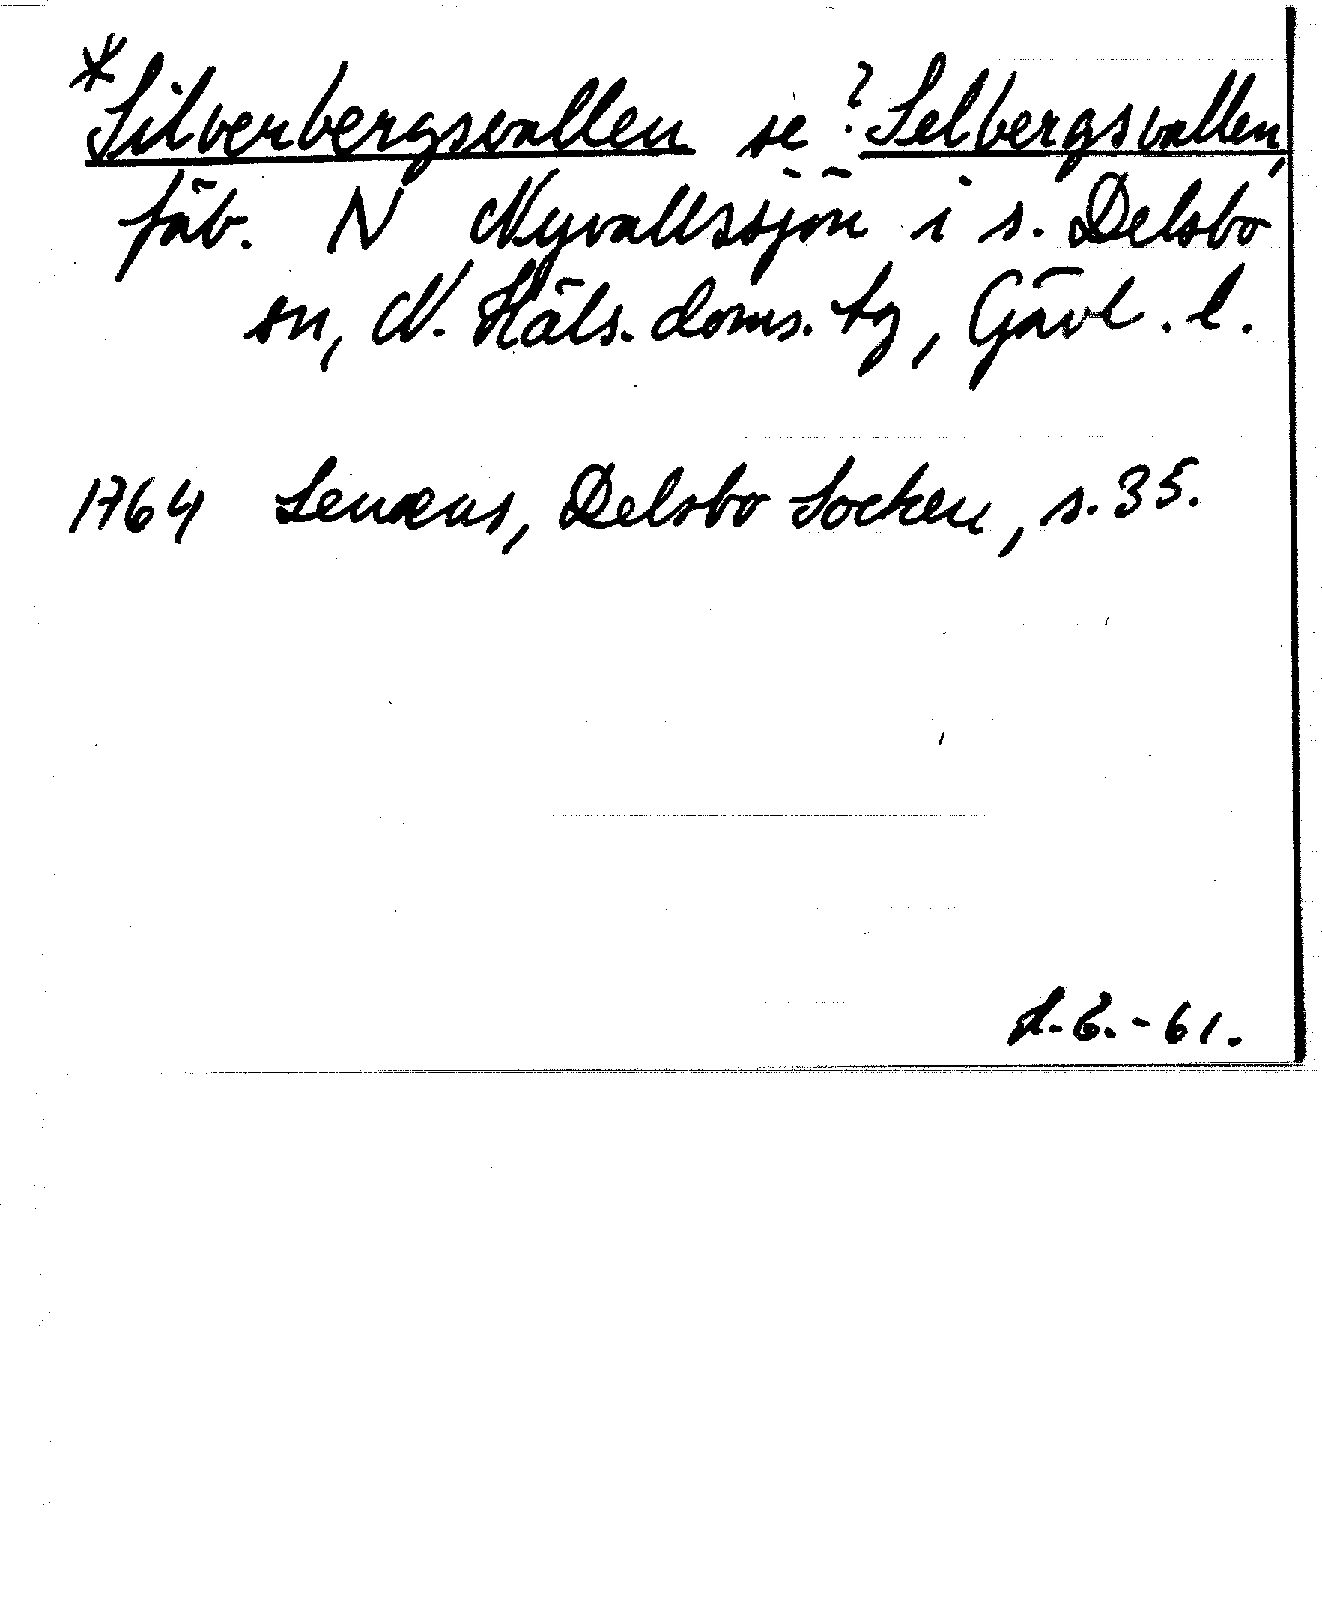 *Silverbergsvallen se ?Selbergsvallen,
fäb. N Nyvallssjön i s. Delsbo
sn, N. Häls. doms. tg, Gävl. l.
1764 Lenæus, Delsbo Socken, s. 35.
-61.